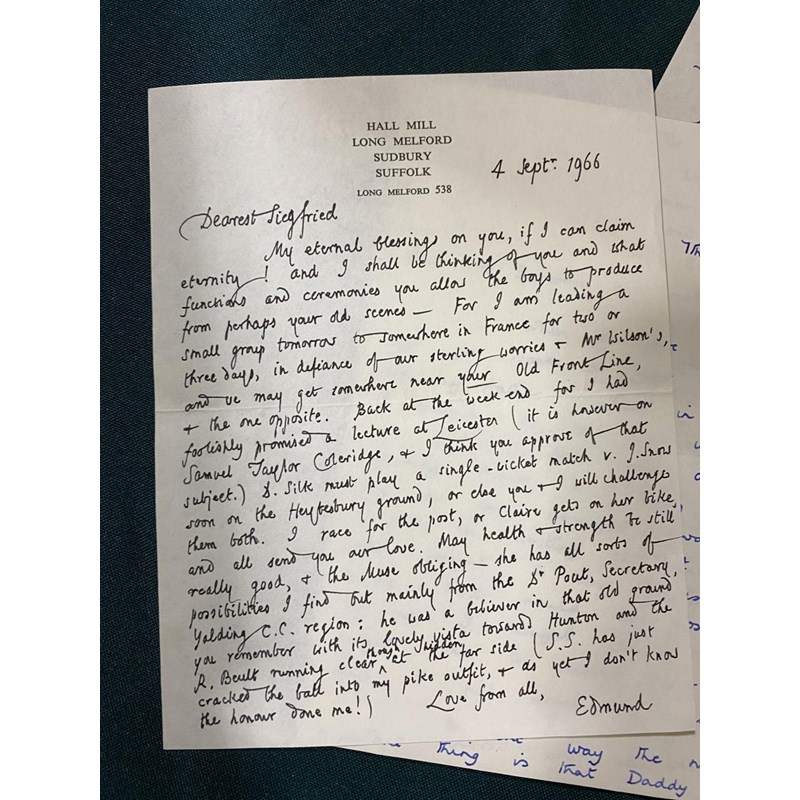 HALL MILL
LONG MELFORD
SUDBURY
SUFFOLK
LONG MELFORD 538
4 Septr. 1966
Dearest Siegfried
My eternal blessings on you, if I can claim
eternity! and I shall be thinking of you and what
functions and ceremonies you allow the boys to produce
from perhaps your old scenes — For I am leading a
small group tomorrow to somewhere in France for two or
three days, in defiance of our sterling worries & Mr Wilson's,
and we may get somewhere near your Old Front Line,
& the one opposite. Back at the week-end for I had
foolishly promised a lecture at Leicester (it is however on
Samuel Taylor Coleridge, & I think you approve of that
subject.) D. Silk must play a single-wicket match v. J. Snow
soon on the Heytesbury ground, or else you & I will challenge
them both. I race for the post, or Claire gets on her bike,
and all send you our love. May health & strength be still
really good, & the Muse obliging — she has all sorts of
possibilities I find but mainly from the Dr Pout, Secretary,
Yalding C.C. region: he was a believer in that old ground
you remember with its lovely vista towards Hunton and the
R. Beult running clear though hidden at the far side (S.S. has just
cracked the ball into my pike outfit, & as yet I don't know
the honour done me!)
Love from all,
Edmund
way the
thing is that Daddy